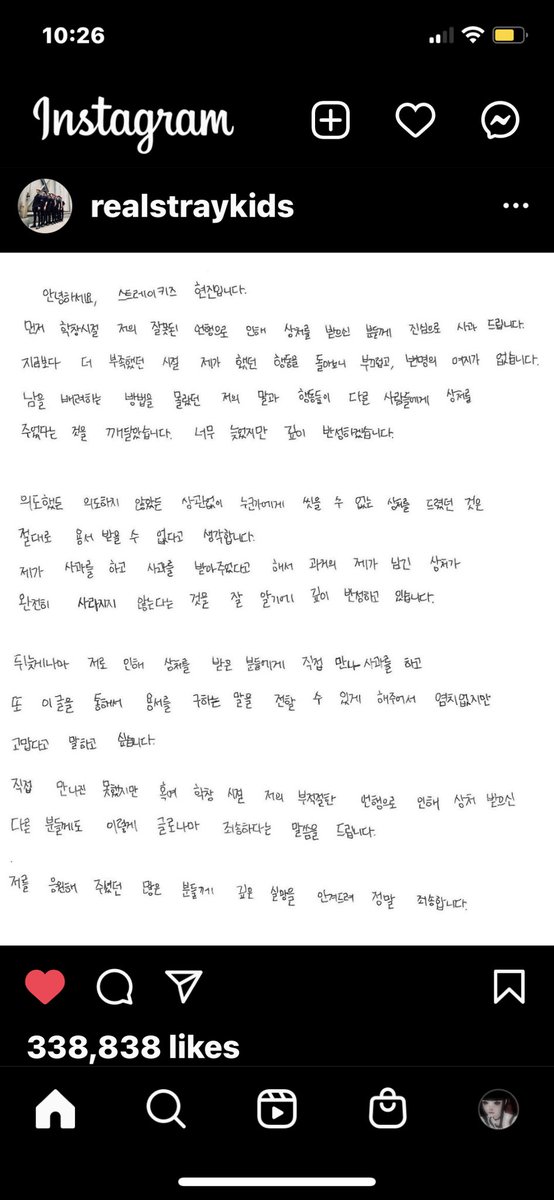 10:26
Instagram
realstraykids
안녕하세요, 스트레이키즈 현진입니다.
먼저 학창시절 저의 잘못된 언행으로 인해 상처를 받으신 분들께 진심으로 사과 드립니다.
지금보다 더 부족했던 시절 제가 했던 행동을 돌아보니 부끄럽고, 변명의 여지가 없습니다.
남을 배려하는 방법을 몰랐던 저의 말과 행동들이 다른 사람들에게 상처를
주었다는 것을 깨달았습니다. 너무 늦었지만 깊이 반성하겠습니다.
의도했든 의도하지 않았든 상관없이 누군가에게 씻을 수 없는 상처를 드렸던 것은
절대로 용서 받을 수 없다고 생각합니다.
제가 사과를 하고 사과를 받아주었다고 해서 과거의 제가 남긴 상처가
완전히 사라지지 않는다는 것을 잘 알기에 깊이 반성하고 있습니다.
뒤늦게나마 저로 인해 상처를 받은 분들에게 직접 만나 사과를 하고
또 이 글을 통해서 용서를 구하는 말을 전할 수 있게 해주어서 염치없지만
고맙다고 말하고 싶습니다.
직접 만나진 못했지만 혹여 학창 시절 저의 부적절한 언행으로 인해 상처 받으신
다른 분들께도 이렇게 글로나마 죄송하다는 말씀을 드립니다.
.
저를 응원해 주셨던 많은 분들께 깊은 실망을 안겨드려 정말 죄송합니다.
338,838 likes